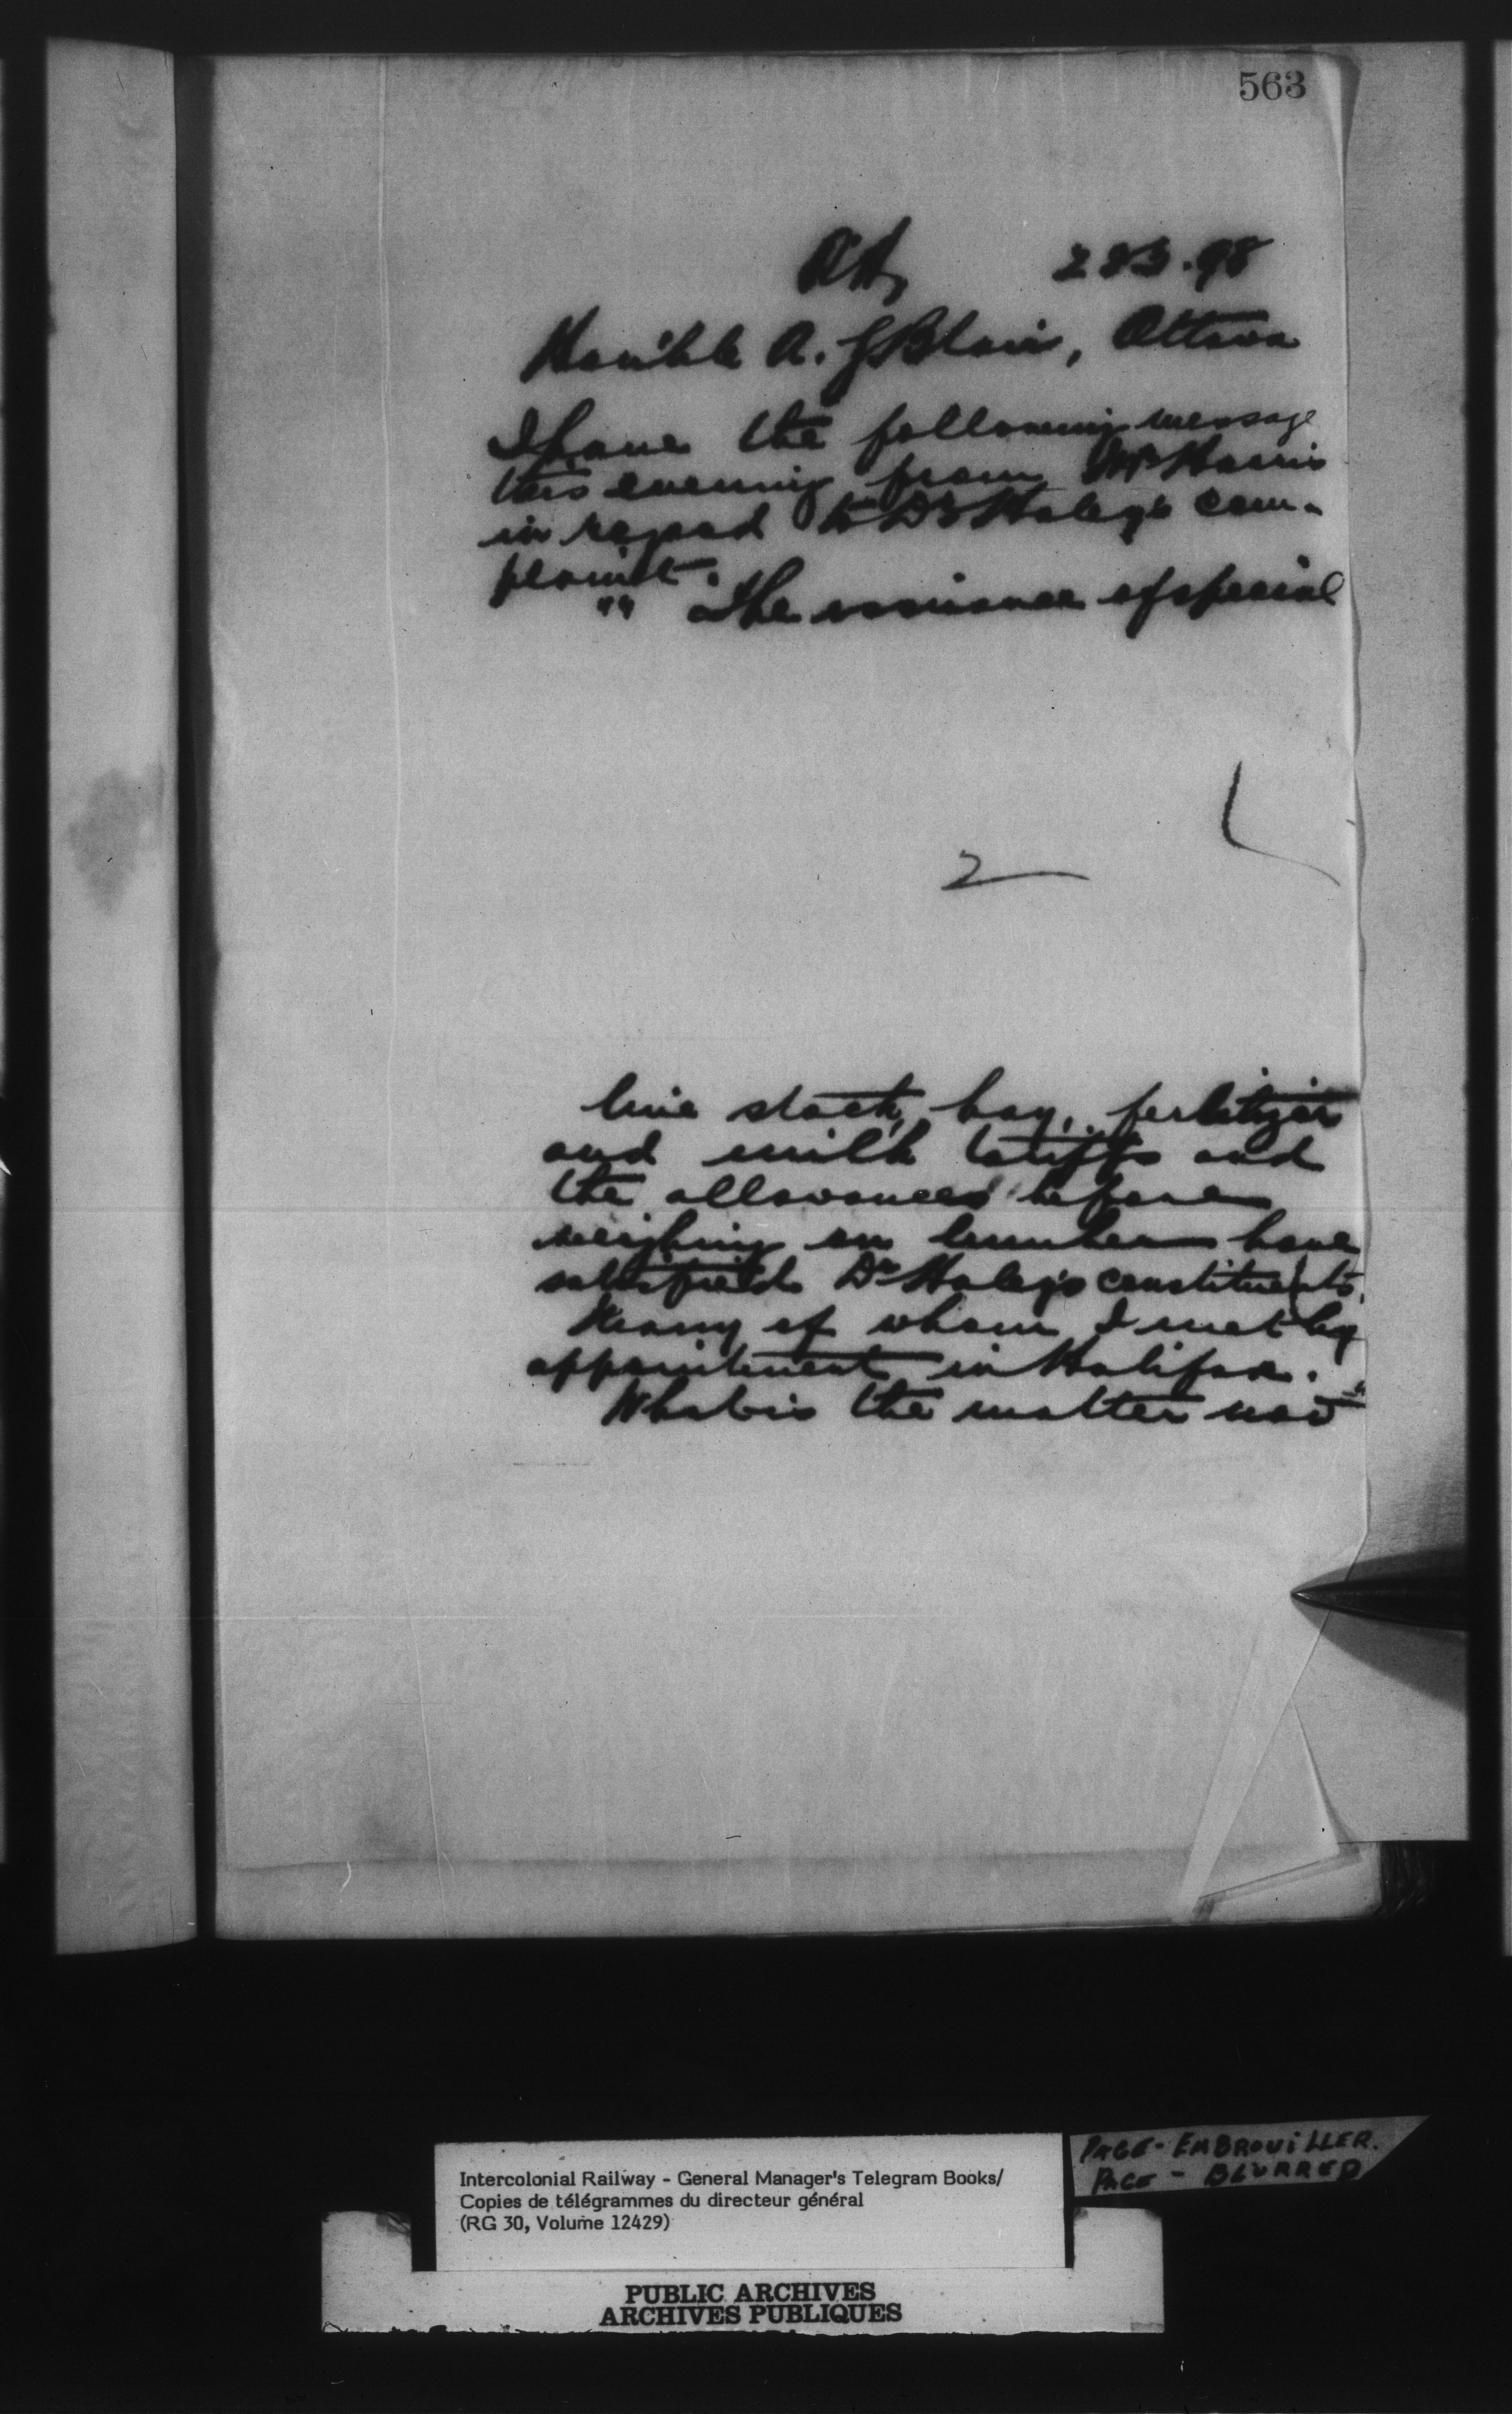 563
28 3. 98
Hon'ble A. G Blair, Ottawa
I have the following message
this evening from Mr Harris
in regard to Dr Haley's com-
plaint.
"" The issuance of special
2
live stock, hay, fertilizer
and milk tariffs and
the allowances before
weighing on lumber have
satisfied Dr Haley's constituents,
Many of whom I met by
appointment in Halifax.
What is the matter now"
PAGE - EMBROUILLER.
PAGE - BLURRED
Intercolonial Railway - General Manager's Telegram Books/
Copies de télégrammes du directeur général
(RG 30, Volume 12429)
PUBLIC ARCHIVES
ARCHIVES PUBLIQUES